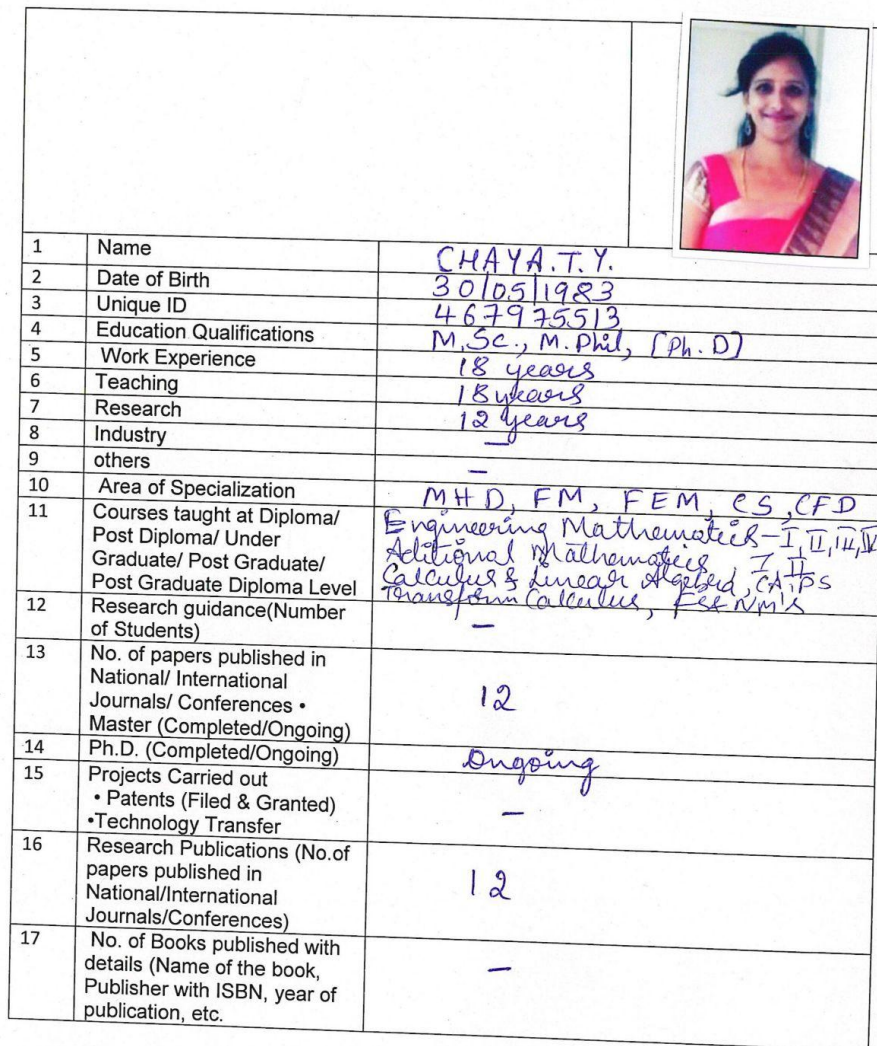 1 Name CHAYA.T.Y.
2 Date of Birth 30/05/1983
3 Unique ID 467975513
4 Education Qualifications M.Sc., M.Phil, [Ph.D]
5 Work Experience 18 years
6 Teaching 18 years
7 Research 12 years
8 Industry –
9 others –
10 Area of Specialization MHD, FM, FEM, CS, CFD
11 Courses taught at Diploma/ Engineering Mathematics-I, II, III, IV
Post Diploma/ Under Aditional Mathematics, I, II
Graduate/ Post Graduate/ Calculus & Linear Algebra, CA, PS
Post Graduate Diploma Level Transform Calculus, FS& NM's
12 Research guidance(Number
of Students) –
13 No. of papers published in
National/ International
Journals/ Conferences • 12
Master (Completed/Ongoing)
14 Ph.D. (Completed/Ongoing) Ongoing
15 Projects Carried out
• Patents (Filed & Granted) –
•Technology Transfer
16 Research Publications (No.of
papers published in 12
National/International
Journals/Conferences)
17 No. of Books published with
details (Name of the book, –
Publisher with ISBN, year of
publication, etc.